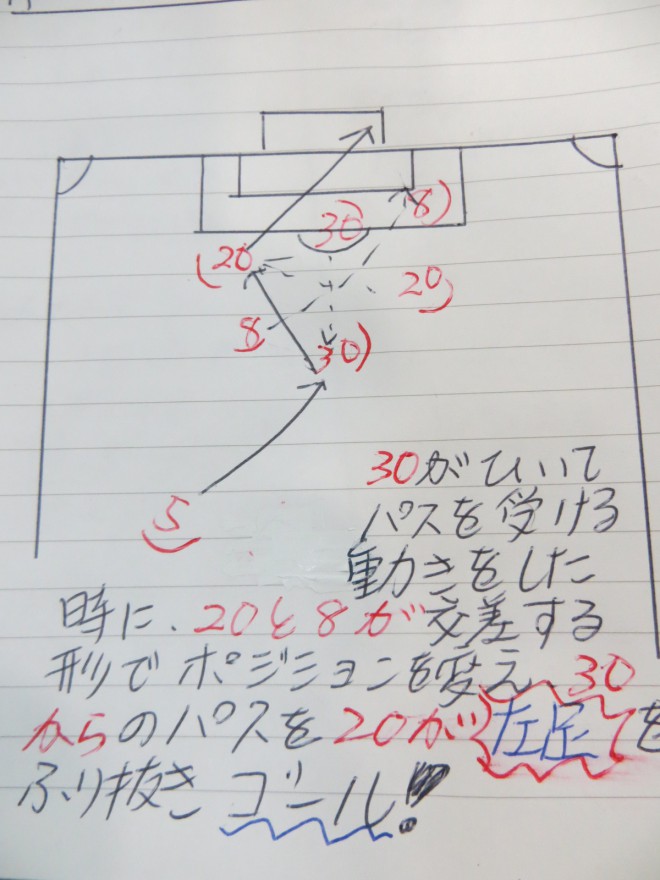 8
30
20
20
8
30
5
30がひいて
パスを受ける
動きをした
時に、20と8が交差する
形でポジションを変え、30
からのパスを20が左足を
ふり抜きゴール!